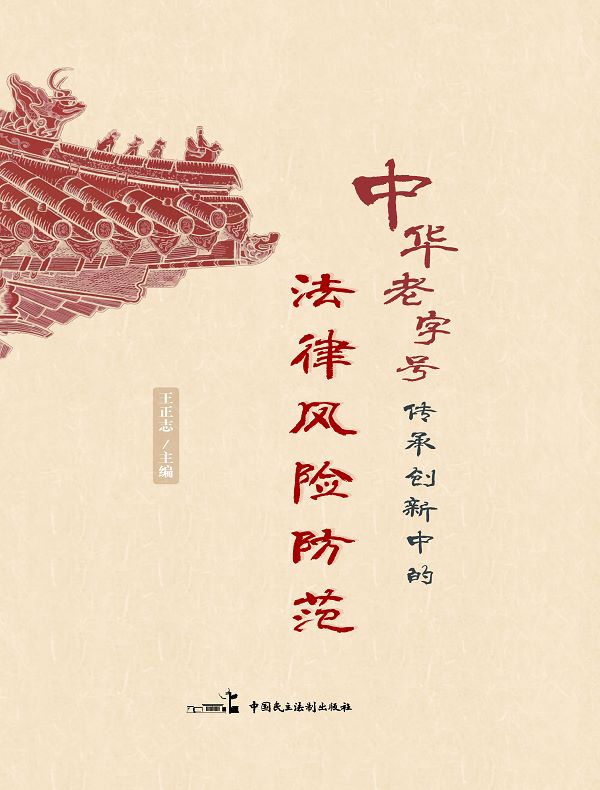 中华老字号传承创新中的
法律风险防范
王正志/主编
中国民主法制出版社